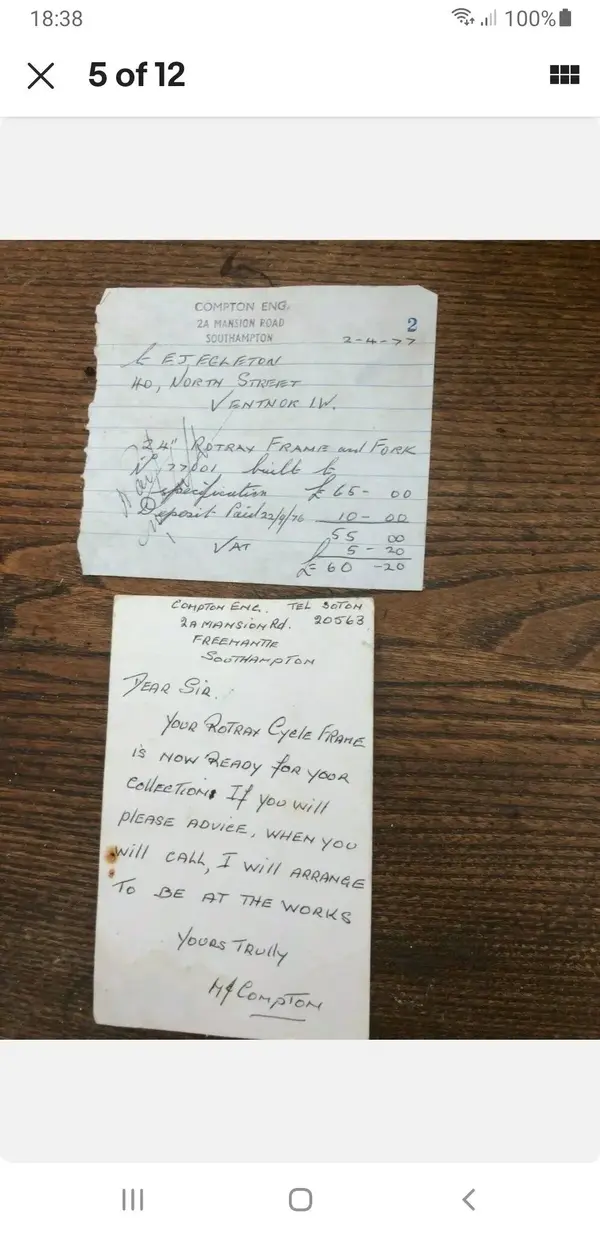 18:38
100%
5 of 12
COMPTON ENG.
2A MANSION ROAD
SOUTHAMPTON
2
2-4-77
E J EGLETON
40, NORTH STREET
VENTNOR I.W.
24" ROTRAX FRAME and FORK
No 77001 built to
specification £65- 00
Deposit Paid 22/9/76 10- 00
55 00
VAT 5-20
£=60 -20
COMPTON ENG. TEL SOTON
2A MANSION Rd. 20563
FREEMANTLE
SOUTHAMPTON
DEAR SIR.
YOUR ROTRAX CYCLE FRAME
IS NOW READY FOR YOUR
COLLECTION. If YOU will
PLEASE ADVICE, WHEN YOU
will CALL, I will ARRANGE
TO BE AT THE WORKS
YOURS TRULLY
COMPTON